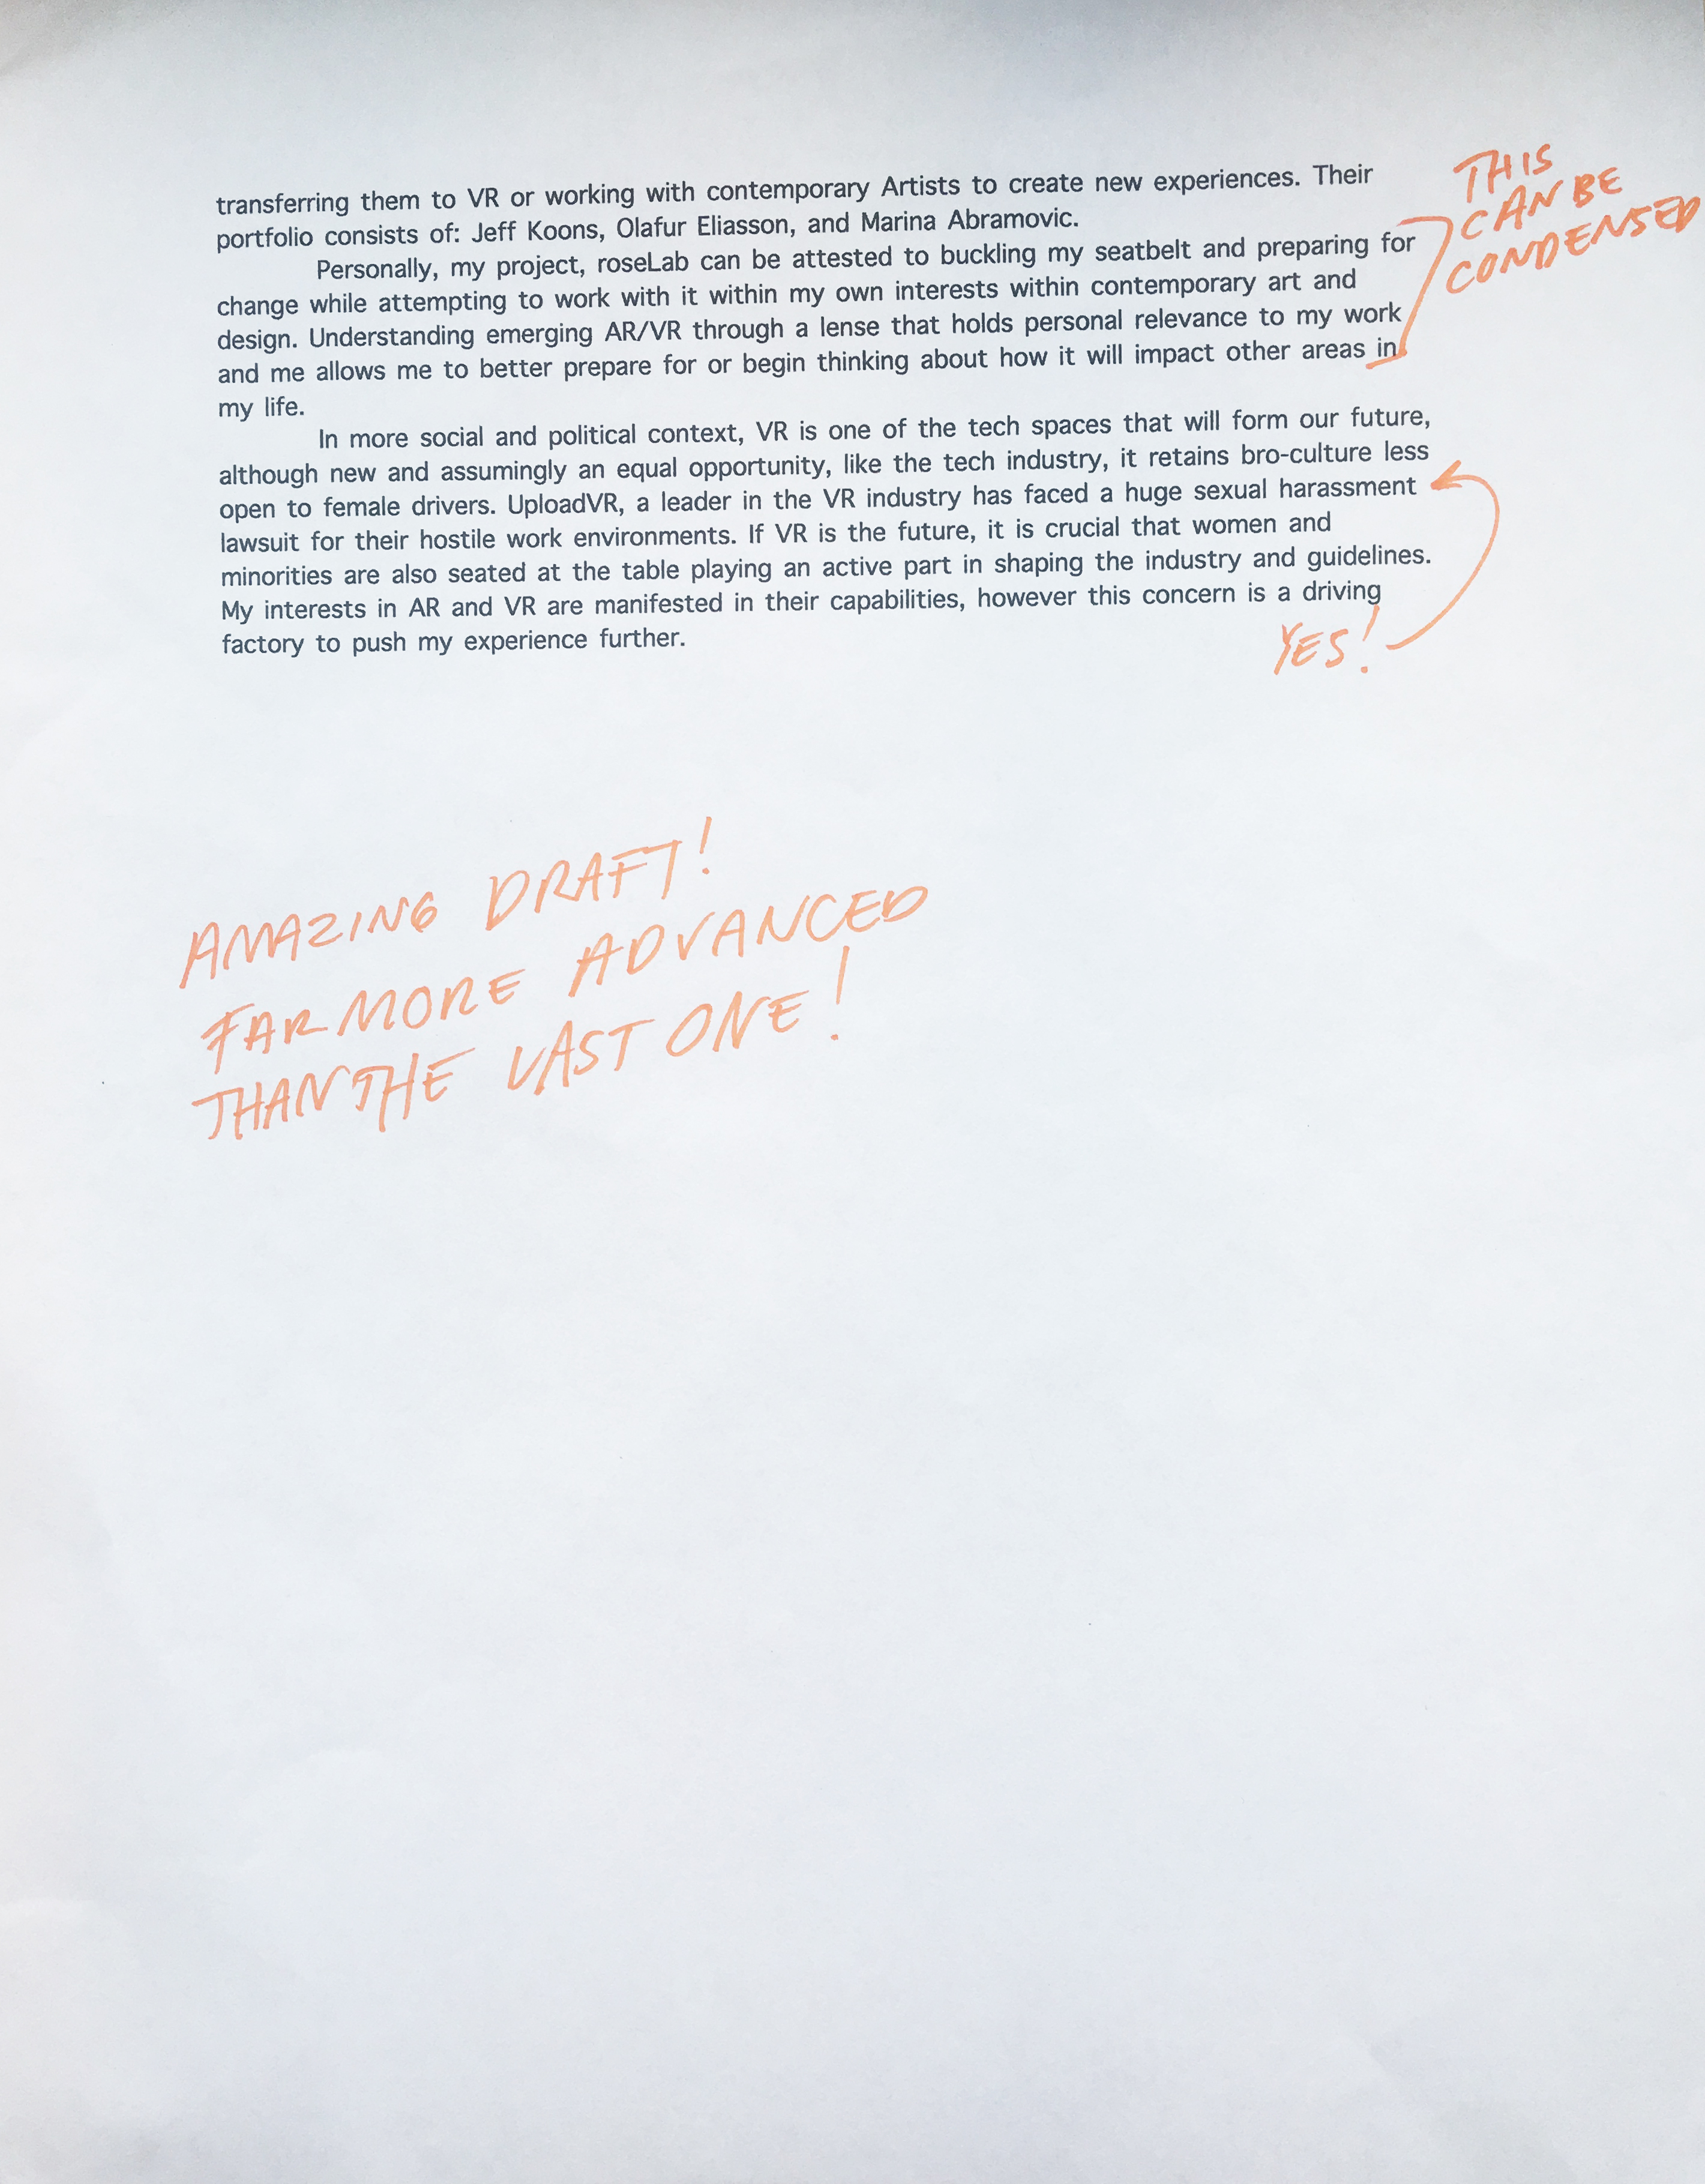 transferring them to VR or working with contemporary Artists to create new experiences. Their
portfolio consists of: Jeff Koons, Olafur Eliasson, and Marina Abramovic.
Personally, my project, roseLab can be attested to buckling my seatbelt and preparing for
change while attempting to work with it within my own interests within contemporary art and
design. Understanding emerging AR/VR through a lense that holds personal relevance to my work
and me allows me to better prepare for or begin thinking about how it will impact other areas in
my life.
THIS
CAN BE
CONDENSED
In more social and political context, VR is one of the tech spaces that will form our future,
although new and assumingly an equal opportunity, like the tech industry, it retains bro-culture less
open to female drivers. UploadVR, a leader in the VR industry has faced a huge sexual harassment
lawsuit for their hostile work environments. If VR is the future, it is crucial that women and
minorities are also seated at the table playing an active part in shaping the industry and guidelines.
My interests in AR and VR are manifested in their capabilities, however this concern is a driving
factory to push my experience further.
YES!
AMAZING DRAFT!
FAR MORE ADVANCED
THAN THE LAST ONE!